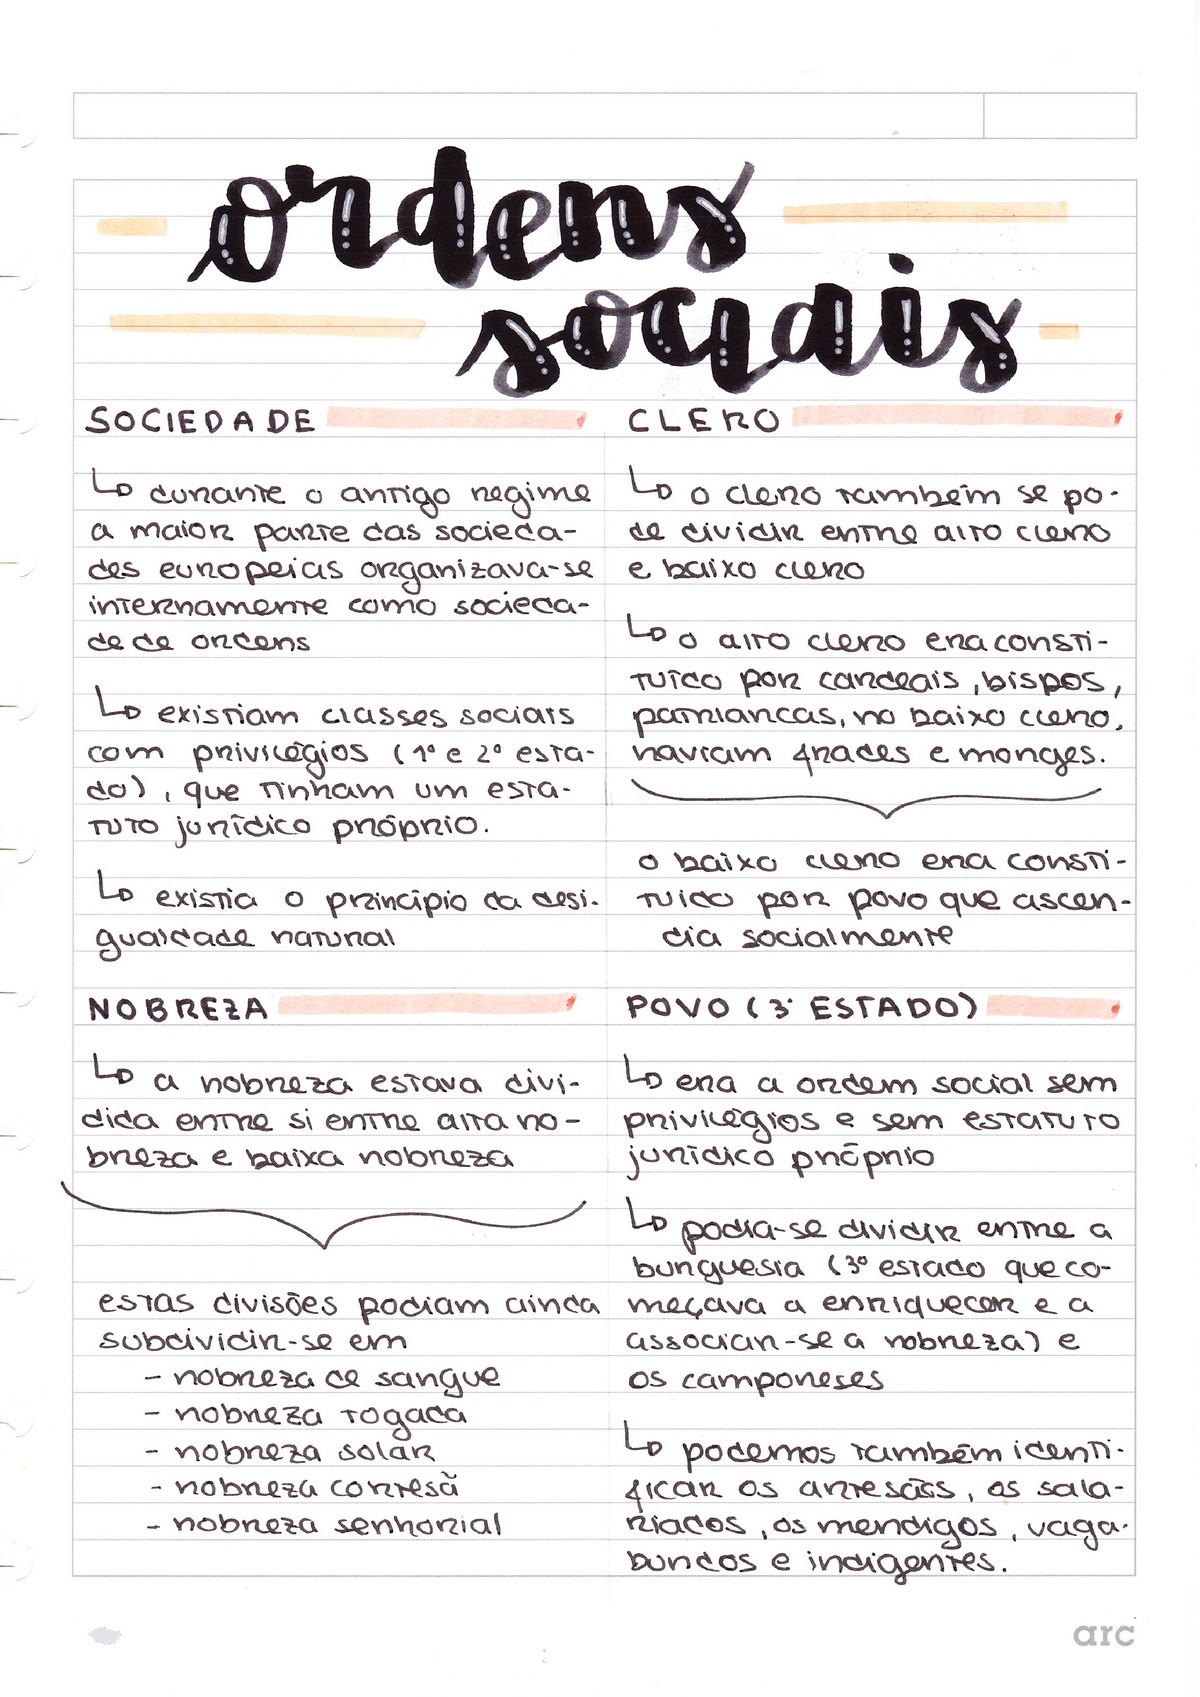 ordens
sociais
SOCIEDADE
↳ durante o antigo regime
a maior parte das socieda-
des europeias organizava-se
internamente como socieda-
de de ordens
↳ existiam classes sociais
com privilégios (1º e 2º esta-
do), que tinham um esta-
tuto jurídico próprio.
↳ existia o princípio da desi-
gualdade natural
CLERO
↳ o clero também se po-
de dividir entre alto clero
e baixo clero
↳ o alto clero era consti-
tuído por cardeais, bispos,
patriarcas, no baixo clero,
haviam frades e monges.
o baixo clero era consti-
tuído por povo que ascen-
dia socialmente
NOBREZA
↳ a nobreza estava divi-
dida entre si entre alta no-
breza e baixa nobreza
estas divisões podiam ainda
subdividir-se em
- nobreza de sangue
- nobreza togada
- nobreza solar
- nobreza cortesã
- nobreza senhorial
POVO (3º ESTADO)
↳ era a ordem social sem
privilégios e sem estatuto
jurídico próprio
↳ podia-se dividir entre a
burguesia (3º estado que co-
meçava a enriquecer e a
associar-se a nobreza) e
os camponeses
↳ podemos também identi-
ficar os artesãos, os sala-
riados, os mendigos, vaga-
bundos e indigentes.
arc